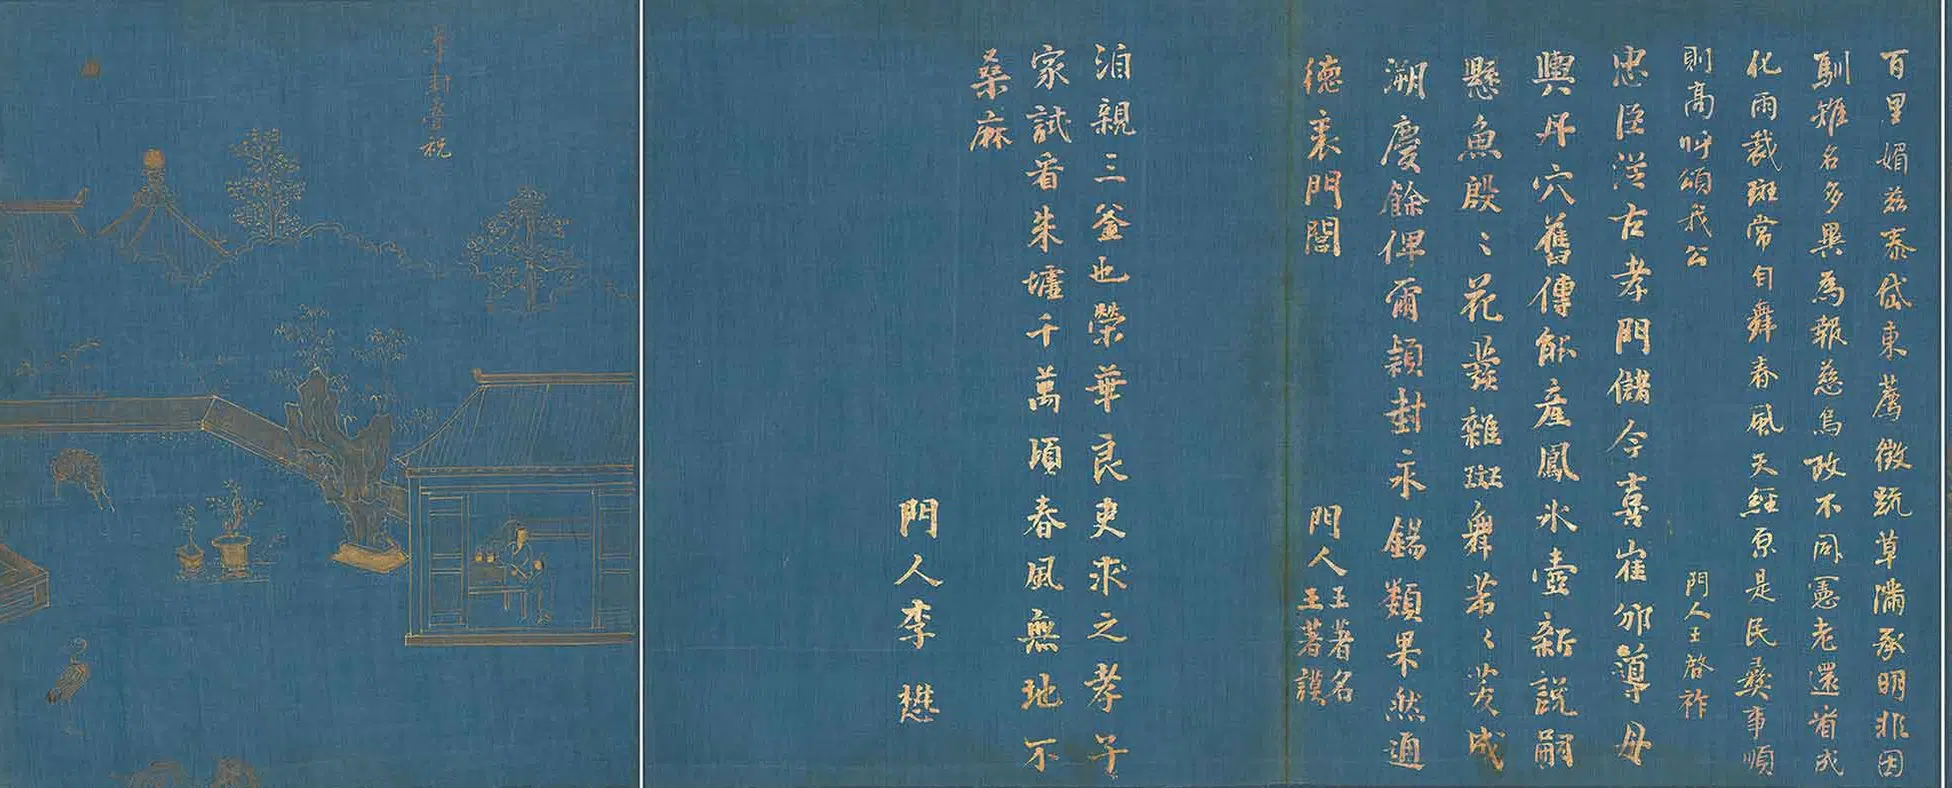 百里媚兹泰岱東薦徵䟽草滿承明非因
馴雉名多異為報慈烏政不同憲老還省成
化雨裁斑常自舞春風天經原是民彝事順
則高呼頌我公
門人王啓祚
忠臣從古孝門儲今喜崔邠導母
輿丹穴舊傳能產鳳氷壺新說嗣
懸魚殷〻花發雜斑舞芾〻芳成
溯慶餘俾爾頴封永錫類果然通
德表門閭
門人王著名
王著謨
洎親三釜也榮華良吏求之孝子
家試看朱墟千萬頃春風無地不
桑麻
門人李懋
華封疊祝